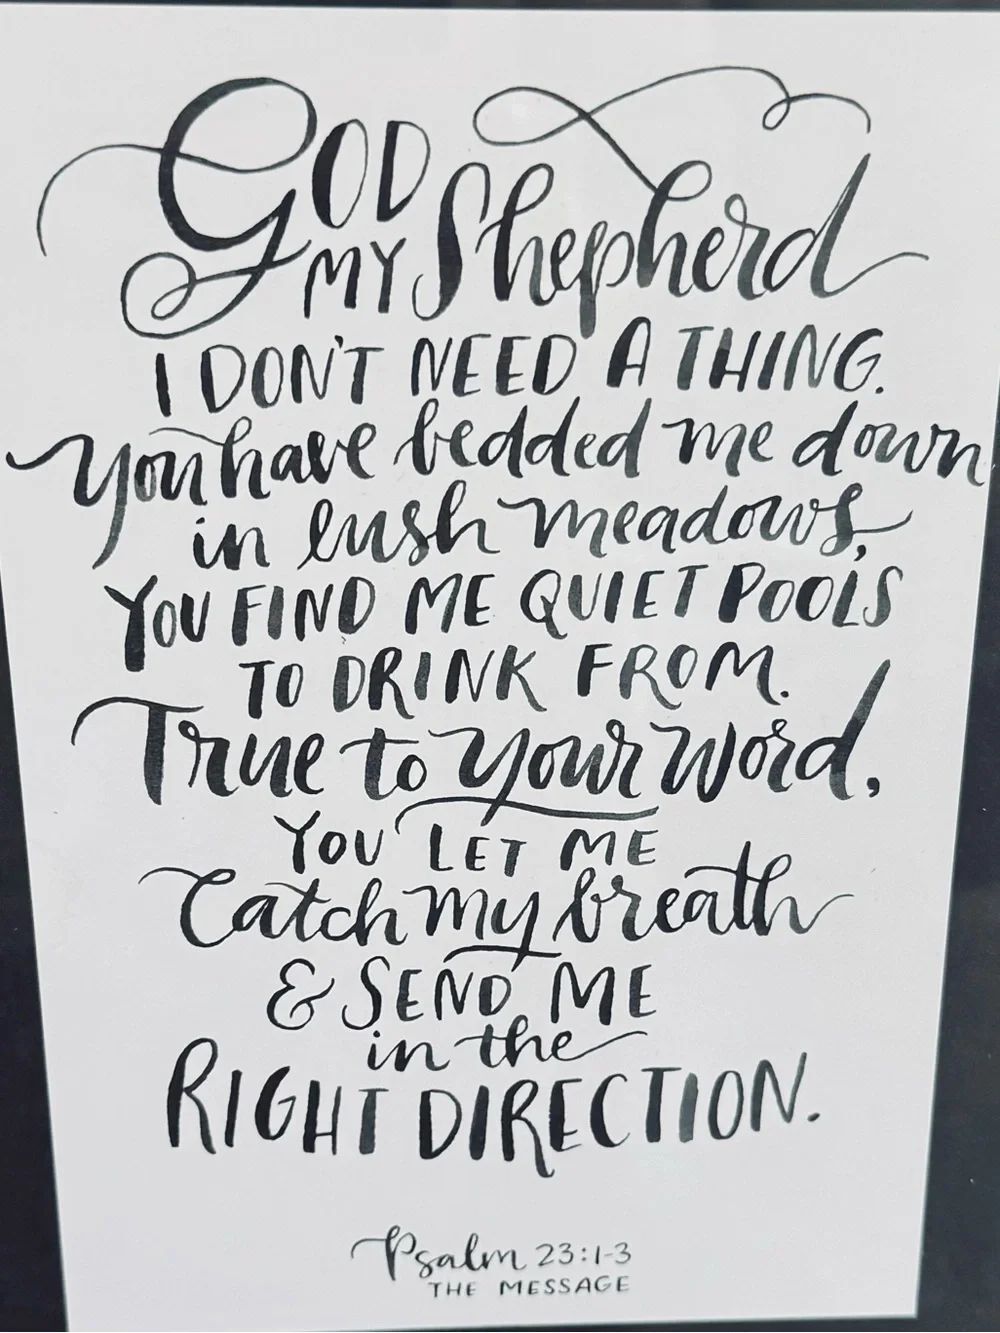 GOD
MY Shepherd
I DON'T NEED A THING.
You have bedded me down
in lush meadows,
YOU FIND ME QUIET POOLS
TO DRINK FROM.
True to your word,
YOU LET ME
Catch my breath
& SEND ME
in the
RIGHT DIRECTION.
Psalm 23:1-3
THE MESSAGE